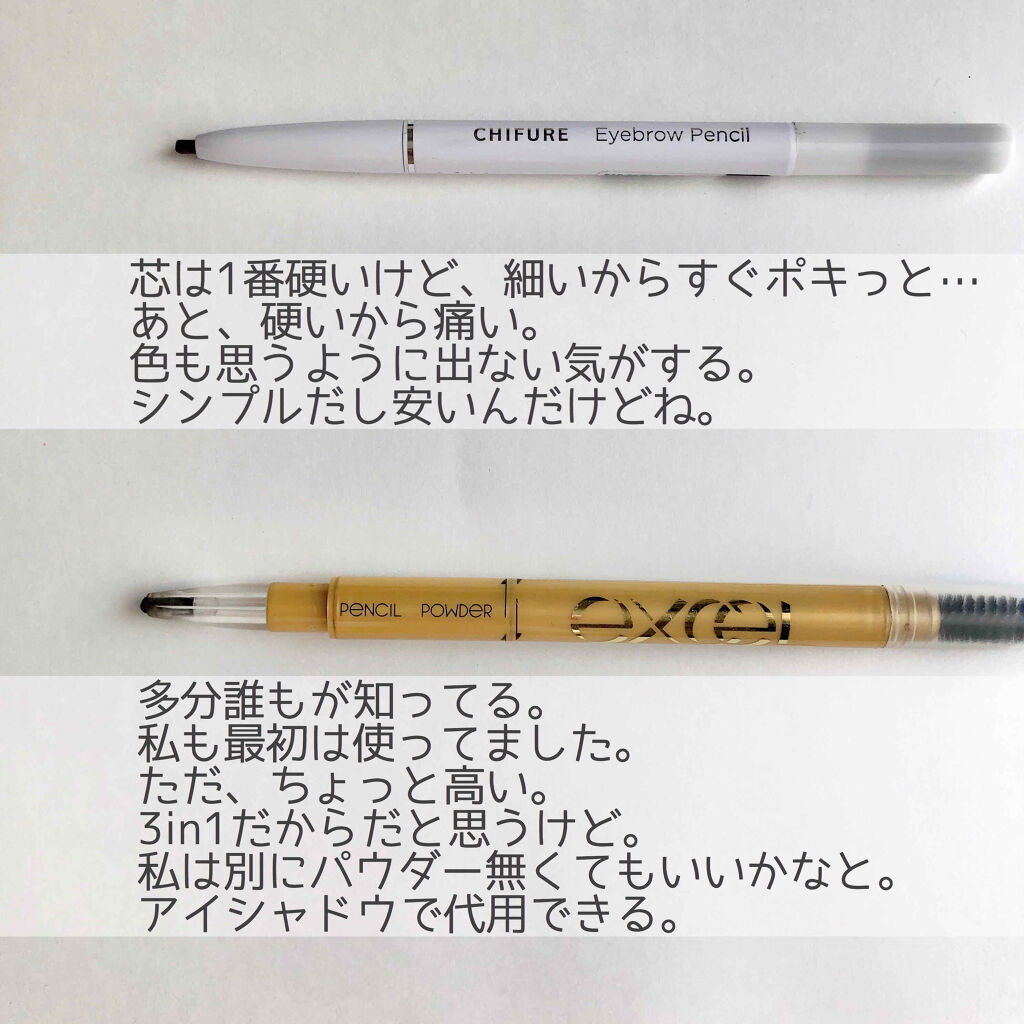 CHIFURE Eyebrow Pencil
芯は1番硬いけど、細いからすぐポキっと…
あと、硬いから痛い。
色も思うように出ない気がする。
シンプルだし安いんだけどね。
PENCIL POWDER excel
多分誰もが知ってる。
私も最初は使ってました。
ただ、ちょっと高い。
3in1だからだと思うけど。
私は別にパウダー無くてもいいかなと。
アイシャドウで代用できる。